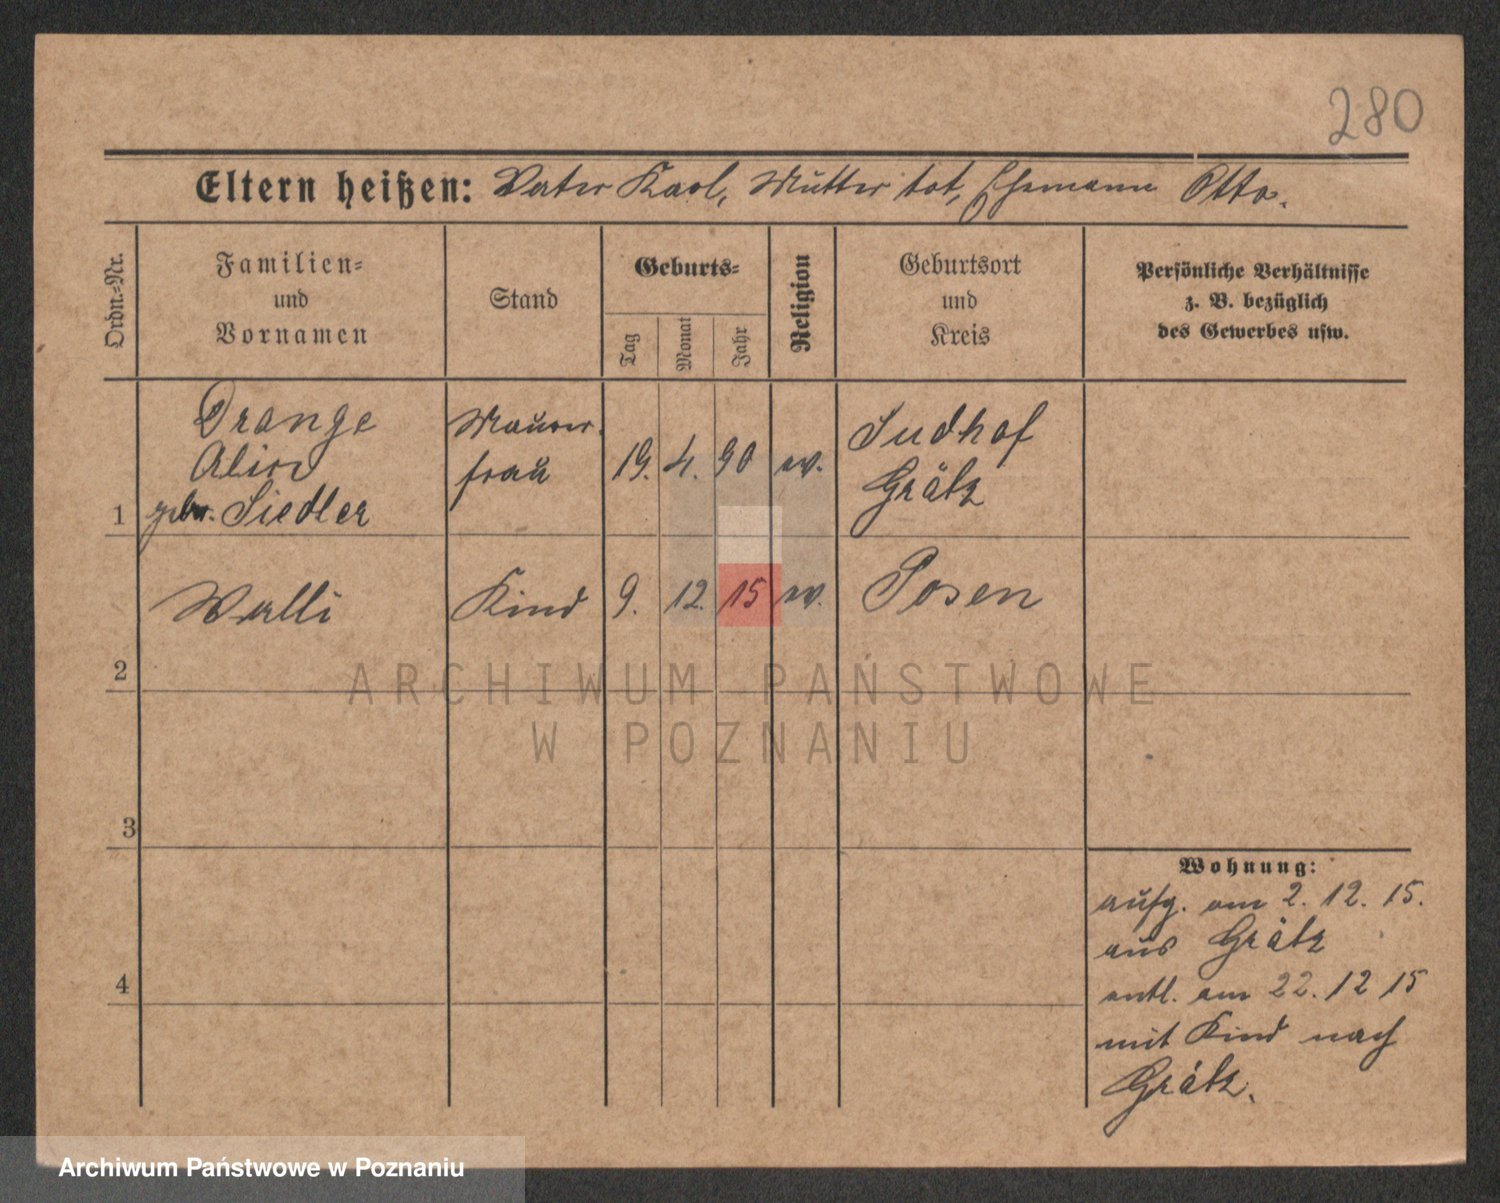 280
Eltern heißen: Vater Karl, Mutter tot, Ehemann Otto.
Ordn.-Nr.
Familien-
und
Vornamen
Stand
Geburts-
Tag
Monat
Jahr
Religion
Geburtsort
und
Kreis
Persönliche Verhältnisse
z. B. bezüglich
des Gewerbes usw.
1
Drange
geb. Siedler
Maurer-
frau
19. 4. 90
ev.
Sudhof
Grätz
2
Walli
Kind
9. 12. 15
ev.
Posen
3
4
Wohnung:
aufg. am 2. 12. 15.
aus Grätz
entl. am 22. 12 15
mit Kind nach
Grätz.
ARCHIWUM PAŃSTWOWE
W POZNANIU
Archiwum Państwowe w Poznaniu